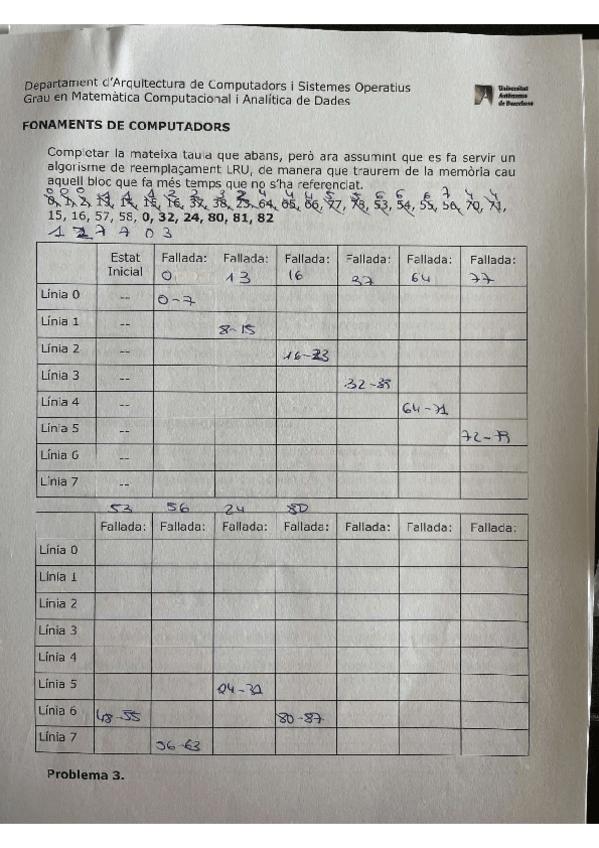 Departament d'Arquitectura de Computadors i Sistemes Operatius
Grau en Matemàtica Computacional i Analítica de Dades
Universitat
Autònoma
de Barcelona
FONAMENTS DE COMPUTADORS
Completar la mateixa taula que abans, però ara assumint que es fa servir un
algorisme de reemplaçament LRU, de manera que traurem de la memòria cau
aquell bloc que fa més temps que no s'ha referenciat.
0, 1, 2, 13, 14, 15, 16, 37, 38, 23, 64, 65, 66, 77, 78, 53, 54, 55, 56, 70, 71,
15, 16, 57, 58, 0, 32, 24, 80, 81, 82
1 2 7 7 0 3
Estat Inicial Fallada: Fallada: Fallada: Fallada: Fallada: Fallada:
0 13 16 37 64 77
Línia 0 -- 0-7
Línia 1 -- 8-15
Línia 2 -- 16-23
Línia 3 -- 32-39
Línia 4 -- 64-71
Línia 5 -- 72-79
Línia 6 --
Línia 7 --
53 56 24 80
Fallada: Fallada: Fallada: Fallada: Fallada: Fallada: Fallada:
Línia 0
Línia 1
Línia 2
Línia 3
Línia 4
Línia 5 24-31
Línia 6 48-55 80-87
Línia 7 56-63
Problema 3.